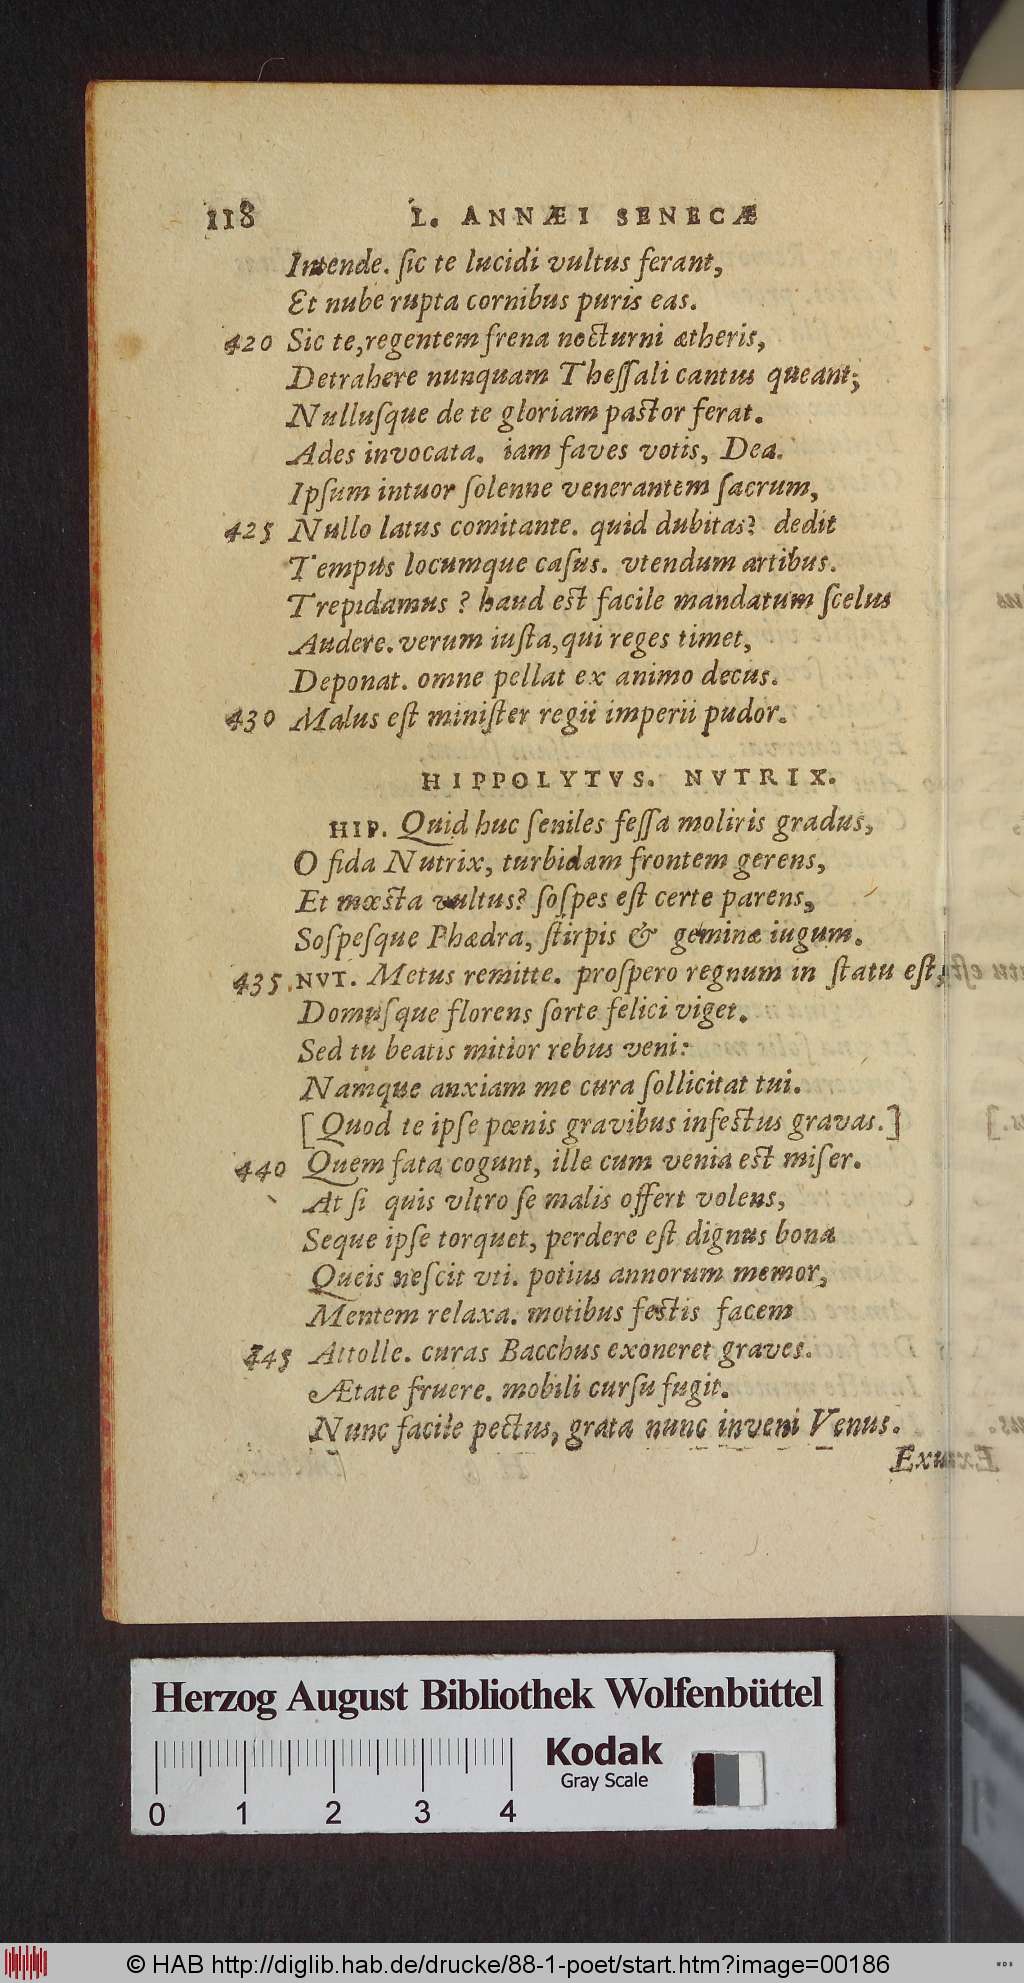 118 L. ANNÆI SENECÆ
Intende. ſic te lucidi vultus ferant,
Et nube rupta cornibus puris eas.
420 Sic te, regentem frena nocturni ætheris,
Detrahere nunquam Theſſali cantus queant;
Nulluſque de te gloriam paſtor ferat.
Ades invocata. iam faves votis, Dea.
Ipſum intuor ſolenne venerantem ſacrum,
425 Nullo latus comitante. quid dubitas? dedit
Tempus locumque caſus. vtendum artibus.
Trepidamus? haud eſt facile mandatum ſcelus
Audere. verum iuſta, qui reges timet,
Deponat. omne pellat ex animo decus.
430 Malus eſt miniſter regii imperii pudor.
HIPPOLYTVS. NVTRIX.
HIP. Quid huc ſeniles feſſa moliris gradus,
O fida Nutrix, turbidam frontem gerens,
Et mœſta vultus? ſoſpes eſt certe parens,
Soſpeſque Phædra, ſtirpis & geminæ iugum.
435 NVT. Metus remitte. proſpero regnum in ſtatu eſt,
Domuſque florens ſorte felici viget.
Sed tu beatis mitior rebus veni:
Namque anxiam me cura ſollicitat tui.
[Quod te ipſe pœnis gravibus infectus gravas.]
440 Quem fata cogunt, ille cum venia eſt miſer.
At ſi quis vltro ſe malis offert volens,
Seque ipſe torquet, perdere eſt dignus bona
Queis neſcit vti. potius annorum memor,
Mentem relaxa. motibus feſtis facem
445 Attolle. curas Bacchus exoneret graves.
Ætate fruere. mobili curſu fugit.
Nunc facile pectus, grata nunc inveni Venus.
Herzog August Bibliothek Wolfenbüttel
Kodak
Gray Scale
0 1 2 3 4
© HAB http://diglib.hab.de/drucke/88-1-poet/start.htm?image=00186